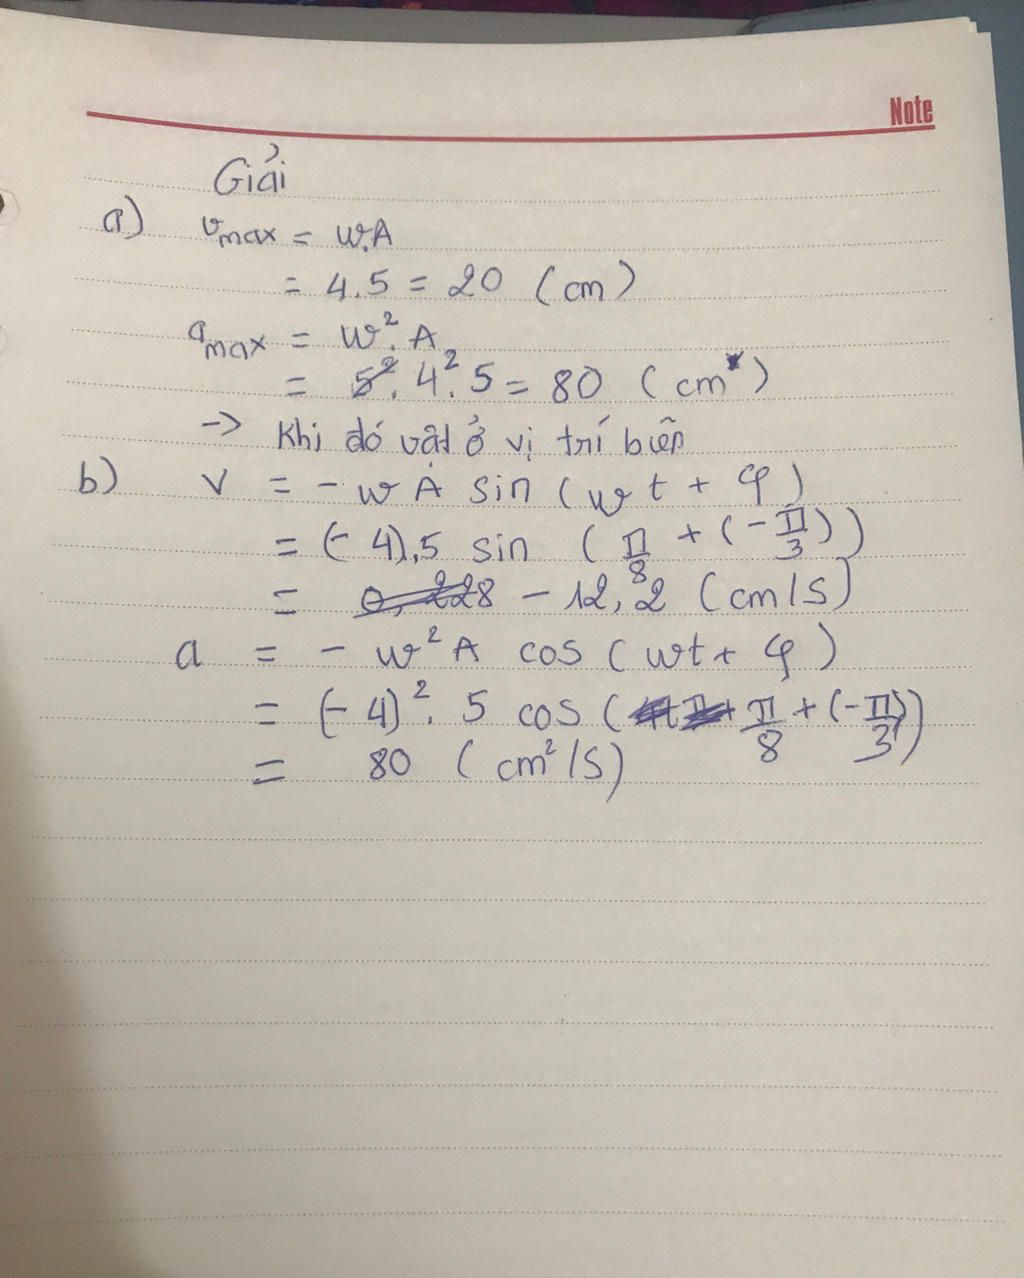 Note
Giải
a) vmax = w.A
= 4.5 = 20 (cm)
amax = w². A
= 5². 4². 5 = 80 (cm)
-> Khi đó vật ở vị trí biên
b) v = - w A sin (wt + φ)
= (-4).5 sin (π/8 + (-π/3))
= 0,228 - 12,2 (cm/s)
a = - w² A cos (wt + φ)
= (-4)². 5 cos (π/8 + (-π/3))
= 80 (cm²/s)